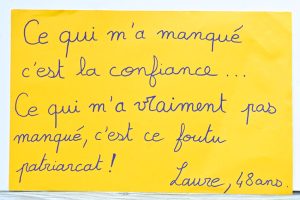 Ce qui m'a manqué
c'est la confiance ...
Ce qui m'a vraiment pas
manqué, c'est ce foutu
patriarcat !
Laure, 48 ans.